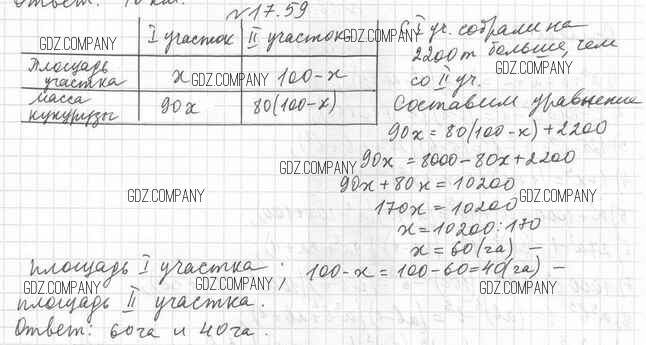 Ответ: 10 км.
№17.59
I участок II участок
Площадь участка x 100-x
Масса кукурузы 90x 80(100-x)
С I уч. собрали на
2200т больше, чем
со II уч.
Составим уравнение
90x = 80(100-x)+2200
90x = 8000-80x+2200
90x+80x = 10200
170x = 10200
x = 10200:170
x = 60(га) –
площадь I участка; 100-x = 100-60=40(га) –
площадь II участка.
Ответ: 60га и 40га.
GDZ.COMPANY
GDZ.COMPANY
GDZ.COMPANY
GDZ.COMPANY
GDZ.COMPANY
GDZ.COMPANY
GDZ.COMPANY
GDZ.COMPANY
GDZ.COMPANY
GDZ.COMPANY
GDZ.COMPANY